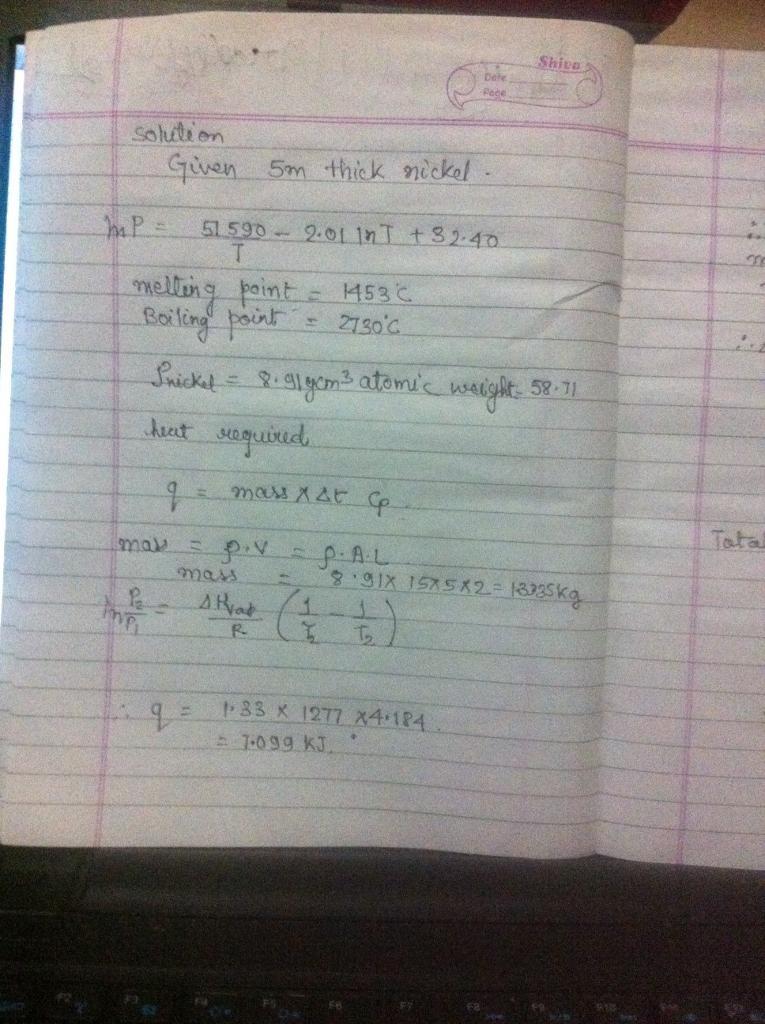 Shiva
Date
Page
solution
Given 5m thick nickel.
ln P = 51590/T - 2.01 lnT + 32.40
melting point = 1453°C
Boiling point = 2730°C
ρnickel = 8.91gcm³ atomic weight = 58.71
heat required
q = mass x Δt Cp.
mass = ρ.V = ρ.A.L
mass = 8.91 x 15x5x2 = 1.3335kg
ln P2/P1 = ΔHvap/R (1/T2 - 1/T2)
∴ q = 1.33 x 1277 x4.184.
= 7.099 KJ.
Total
F2
F3
F4
F5
F6
F7
F8
F9
F10